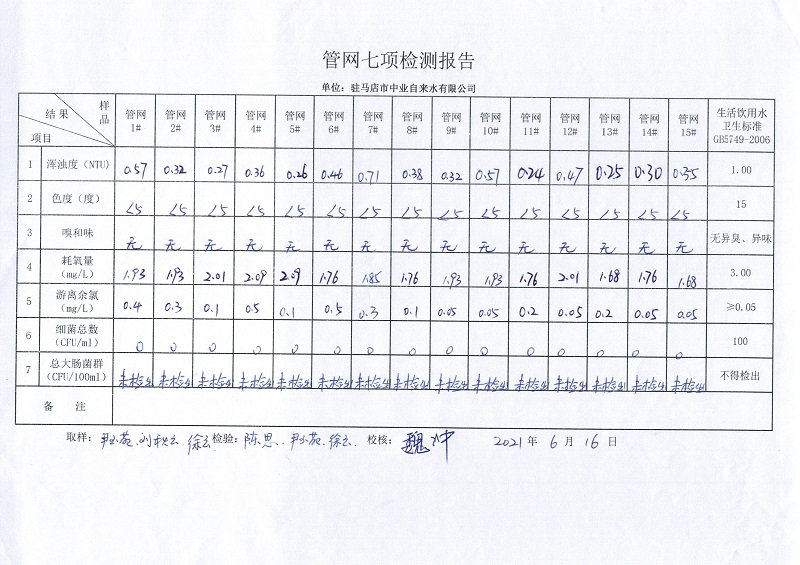 管网七项检测报告
单位：驻马店市中业自来水有限公司
结果 样品 项目 管网1# 管网2# 管网3# 管网4# 管网5# 管网6# 管网7# 管网8# 管网9# 管网10# 管网11# 管网12# 管网13# 管网14# 管网15# 生活饮用水卫生标准GB5749-2006
1 浑浊度（NTU） 0.57 0.32 0.27 0.36 0.26 0.46 0.71 0.38 0.32 0.57 0.24 0.47 0.25 0.30 0.35 1.00
2 色度（度） <5 <5 <5 <5 <5 <5 <5 <5 <5 <5 <5 <5 <5 <5 <5 15
3 嗅和味 无 无 无 无 无 无 无 无 无 无 无 无 无 无 无 无异臭、异味
4 耗氧量（mg/L） 1.93 1.93 2.01 2.09 2.09 1.76 1.85 1.76 1.93 1.93 1.76 2.01 1.68 1.76 1.68 3.00
5 游离余氯（mg/L） 0.4 0.3 0.1 0.5 0.1 0.5 0.3 0.1 0.05 0.05 0.2 0.05 0.2 0.05 0.05 ≥0.05
6 细菌总数（CFU/ml） 0 0 0 0 0 0 0 0 0 0 0 0 0 0 0 100
7 总大肠菌群（CFU/100ml） 未检出 未检出 未检出 未检出 未检出 未检出 未检出 未检出 未检出 未检出 未检出 未检出 未检出 未检出 未检出 不得检出
备 注
取样： 徐云 检验：陈思、 徐云 校核：魏冲 2021年6月16日